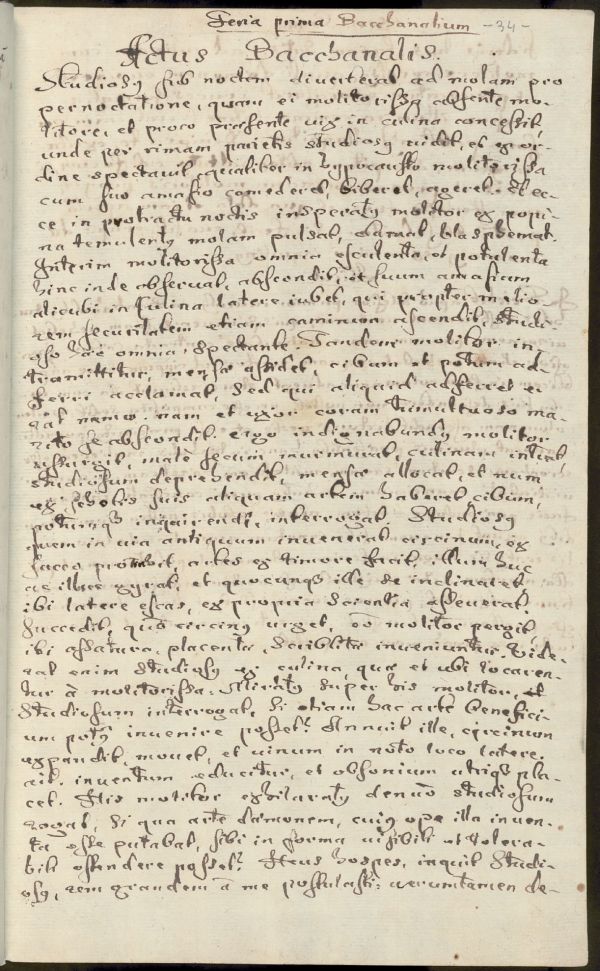 Feria prima Bacchanalium -34-
Actus Bacchanalis.
Studiosꝯ sub noctem diverterat ad molam pro
pernoctatione, quam ei molitorissa absente mo-
litore, et proco praesente vix in culina concessit,
unde per rimam parietis studiosꝯ vidit, et ex or-
dine spectavit, qualiter in hypocausto molitorissa
cum suo amasio comederet, biberet, ageret. Et ec-
ce in protractu noctis insperatꝯ molitor ex popi-
na temulentꝯ molam pulsat, clamat, blasphemat.
Interim molitorissa omnia esculenta, et potulenta
hinc inde observat, abscondit, et suum amasium
alicubi in culina latere iubet, qui propter melio-
rem securitatem etiam caminum ascendit, studi-
oso haec omnia spectante. Tandem molitor in-
tramittitur, mensae assidet, cibum et potum ad-
ferri acclamat, sed qui aliquid adferret ei
rat nemo. nam et uxor coram tumultuoso ma-
rito se abscondit. ergo indignabundꝯ molitor
assurgit, malè secum murmurat, culinam intrat,
studiosum deprehendit, mensae allocat, et num
ex scholis suis aliquam artem haberet cibum,
potumqꝫ inquirendi, interrogat. Studiosꝯ
quem in via antiquum invenerat circinum, ex
sacco protrahit, artes ex timore facit, illum huc
ac illuc gyrat, et quocunqꝫ ille se inclinaret
ibi latere escas, ex propria scientia asseverat.
Succedit, quò circinꝯ urget, eò molitor pergit,
ibi assatura, placenta, scriblita inveniuntur. Vide-
rat enim studiosꝯ ex culina, quae et ubi locaren-
tur à molitorissa. Miratꝯ super his molitor, et
studiosum interrogat, si etiam hac arte benefici-
um potꝯ invenire posset? Annuit ille, circinum
expandit, movet, et vinum in noto loco latere
ait. inventum educitur, et obsonium utriqꝫ pla-
cet. His molitor exhilaratꝯ denuò studiosum
rogat, si qua arte daemonem, cuiꝯ ope illa inven-
ta esse putabat, sibi in forma visibili et tolera-
bili ostendere posset? Heus hospes, inquit studi-
osꝯ, rem grandem à me postulasti: veruntamen de-